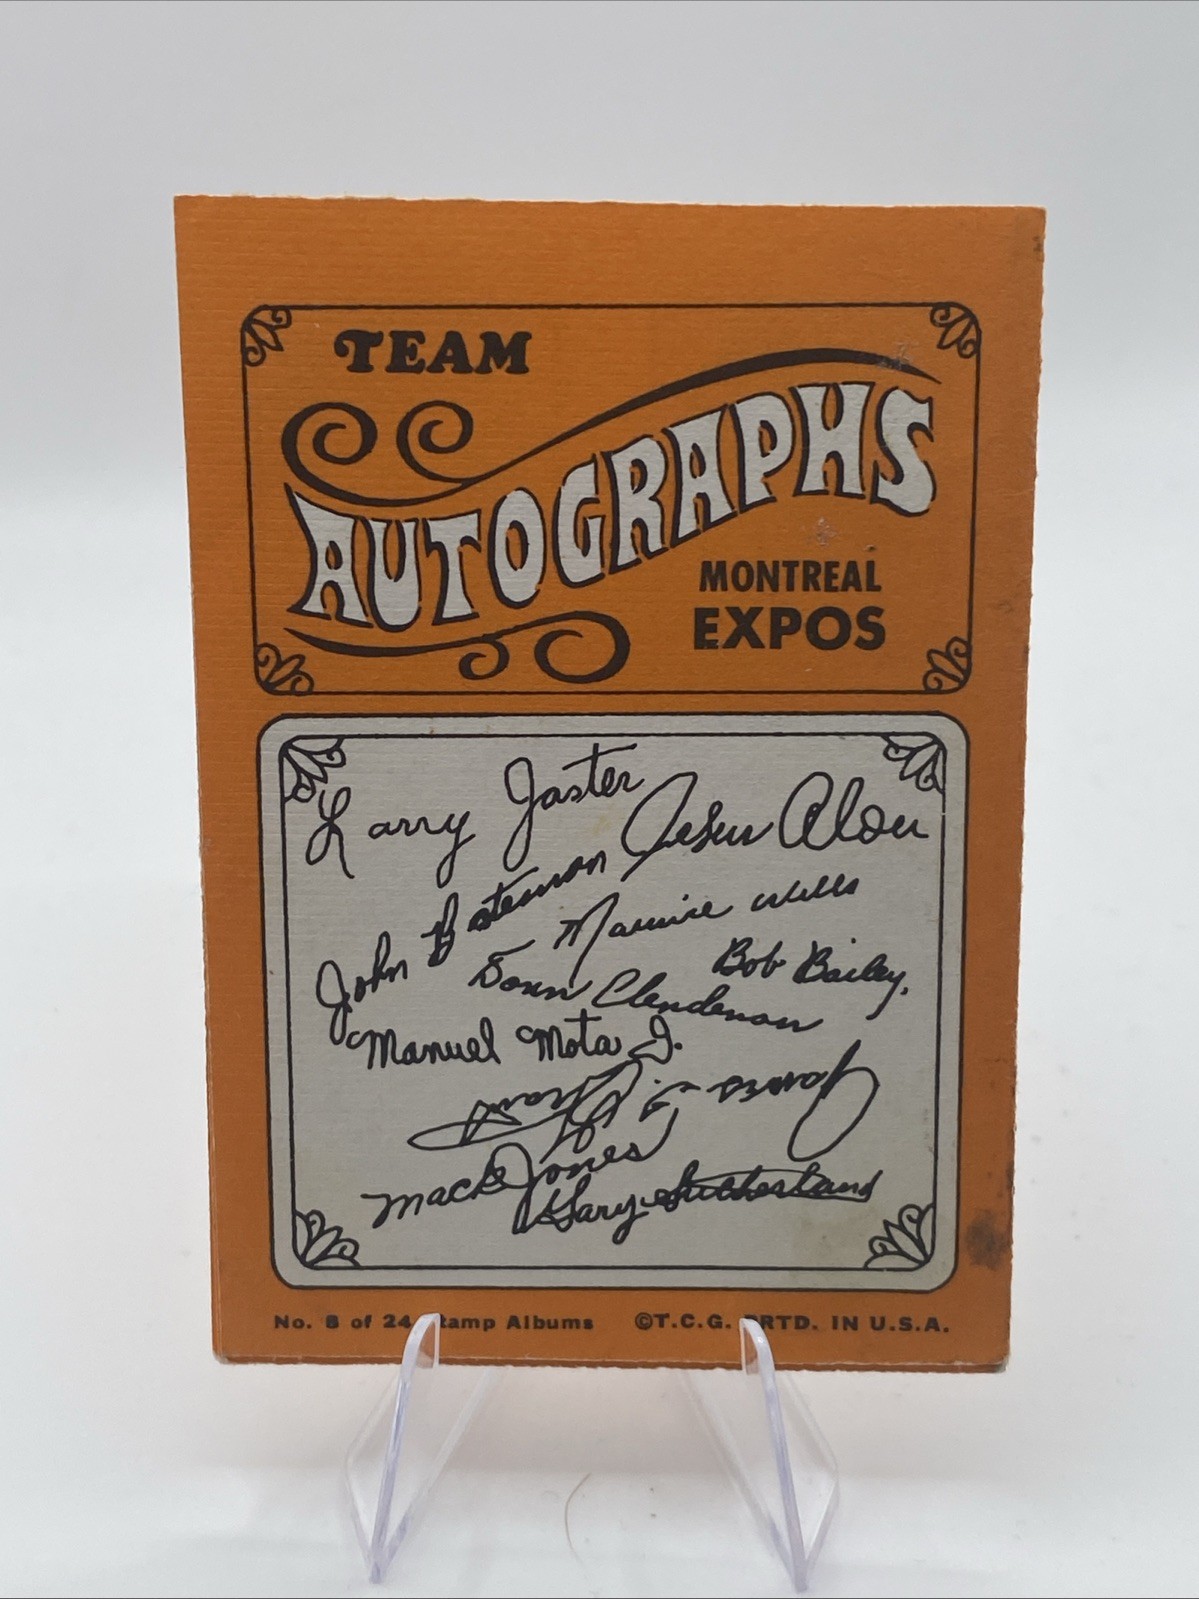 TEAM
AUTOGRAPHS
MONTREAL
EXPOS
Larry Jaster
Jesus Alou
John Bateman
Maurice Wills
Bob Bailey
Donn Clendenon
Manuel Mota J.
Mack Jones
Gary Sutherland
No. 8 of 24 Stamp Albums ©T.C.G. PRTD. IN U.S.A.